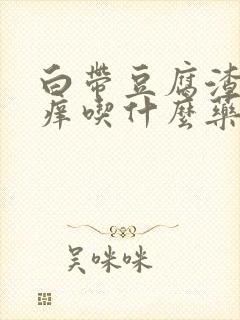 白帶豆腐渣
痒喫什麽藥
吴咪咪